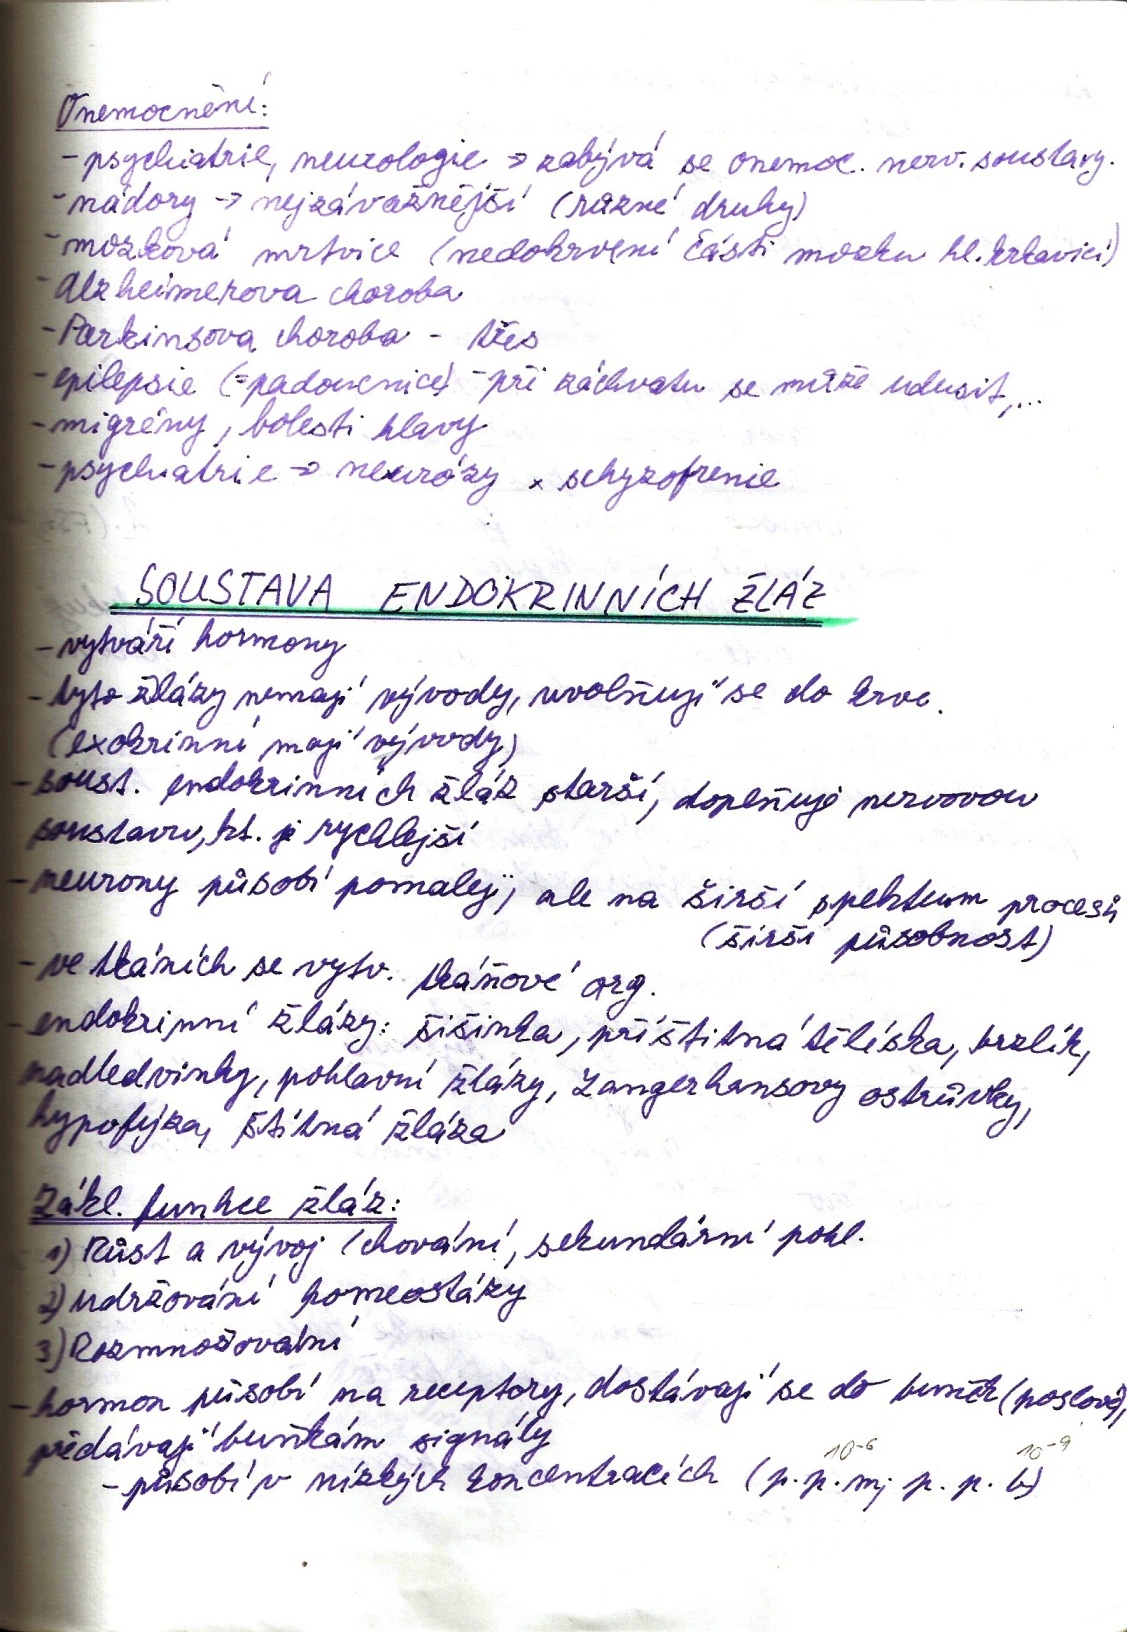 Onemocnění:
- psychiatrie, neurologie → zabývá se onemoc. nerv. soustavy.
- nádory → nejzávažnější (různé druhy)
- mozková mrtvice (nedokrvení části mozku hl. krkavicí)
- Alzheimerova choroba
- Parkinsova choroba - třes
- epilepsie (= padoucnice) - při záchvatu se může udusit,...
- migrény, bolesti hlavy
- psychiatrie → neurózy x schyzofrenie
SOUSTAVA ENDOKRINNÍCH ŽLÁZ
- vytváří hormony
- tyto žlázy nemají vývody, uvolňují se do krve.
(exokrinní mají vývody)
- soust. endokrinních žláz starší, doplňuje nervovou
soustavu, kt. je rychlejší
- neurony působí pomaleji, ale na širší spektum procesů
(širší působnost)
- ve tkáních se vytv. tkáňové org.
- endokrinní žlázy: šišinka, příštitná tělíska, brzlík,
nadledvinky, pohlavní žlázy, Langerhansovy ostrůvky,
hypofýza, štítná žláza
Zákl. funkce žláz:
1) Růst a vývoj (chování, sekundární pohl.
2) Udržování homeostázy
3) Rozmnožování
- hormon působí na receptory, dostávají se do buněk (poslové),
předávají buňkám signály
10⁻⁶ 10⁻⁹
- působí v nízkých koncentracích (p.p.m; p.p.b)